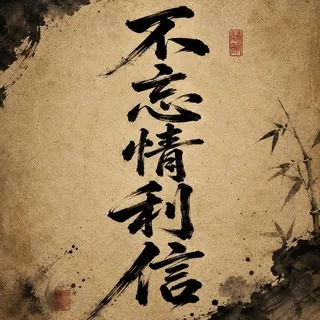 不忘情利信